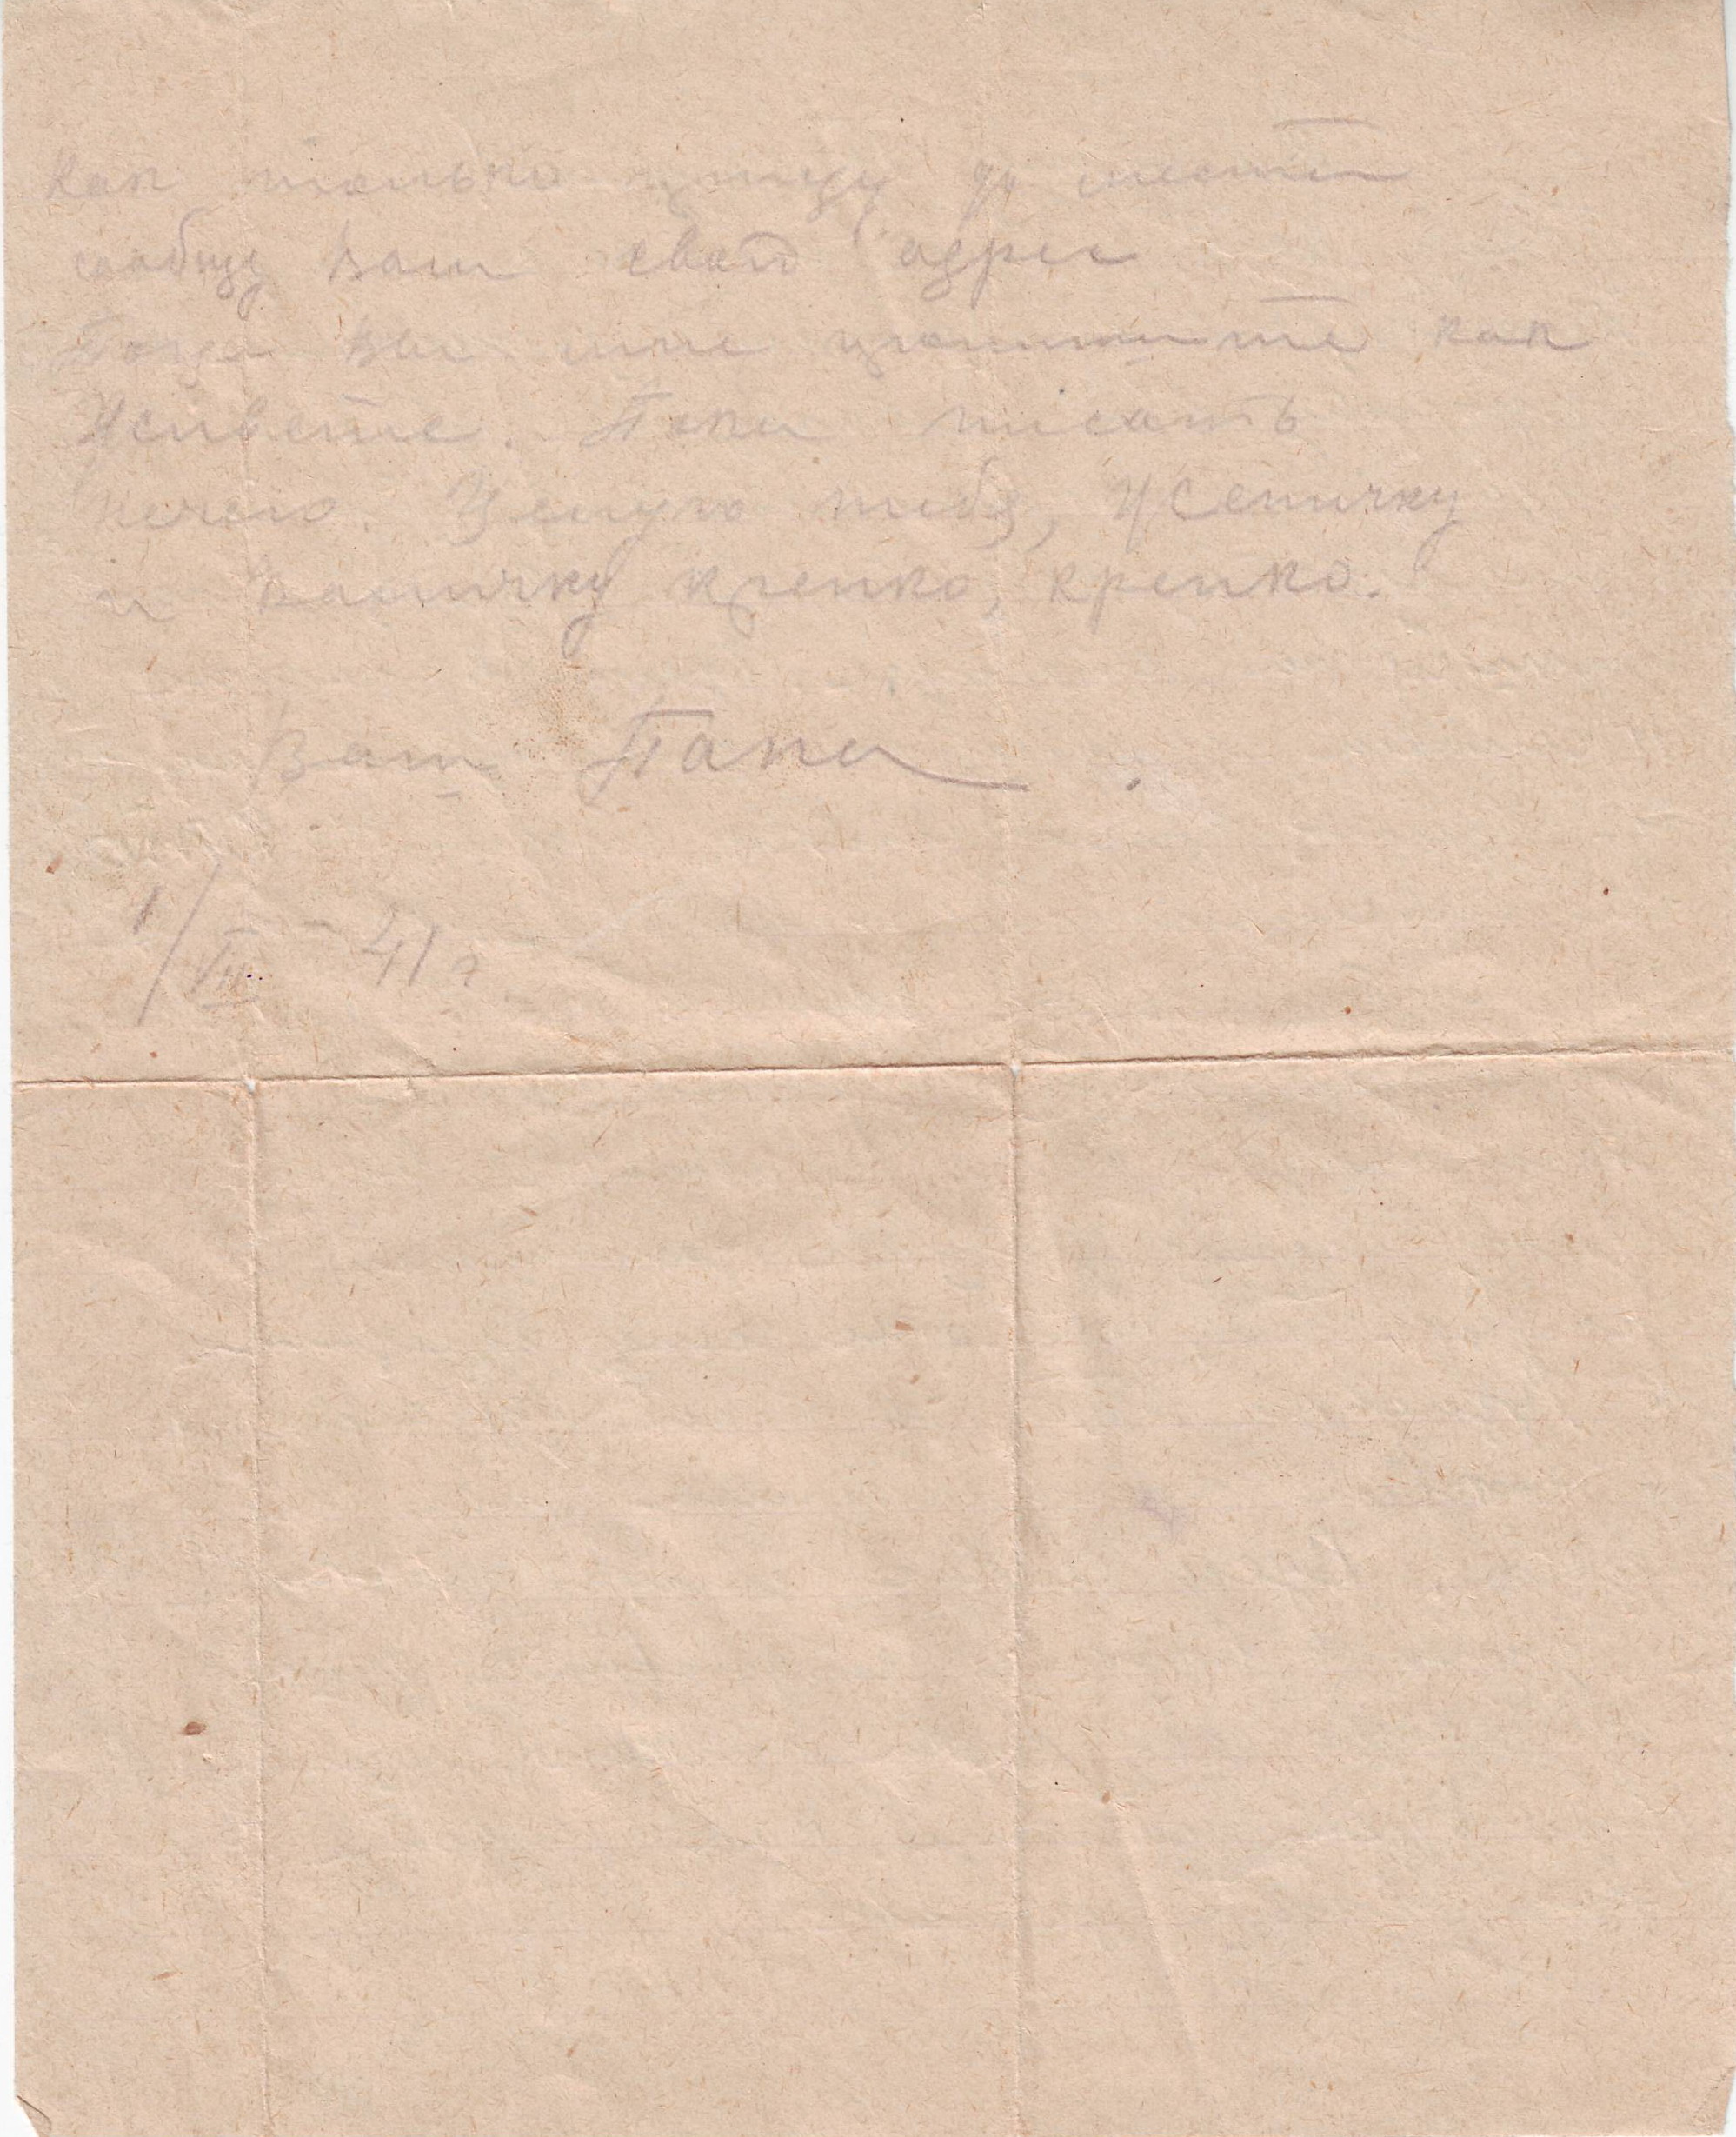 Как только приеду до места
сообщу Вам свой адрес
Тогда Вы мне напишите как
живете. Пока писать
нечего. Целую тебя, Женичку
и Васичку крепко, крепко.
Ваш Папа
1/VIII - 41 г